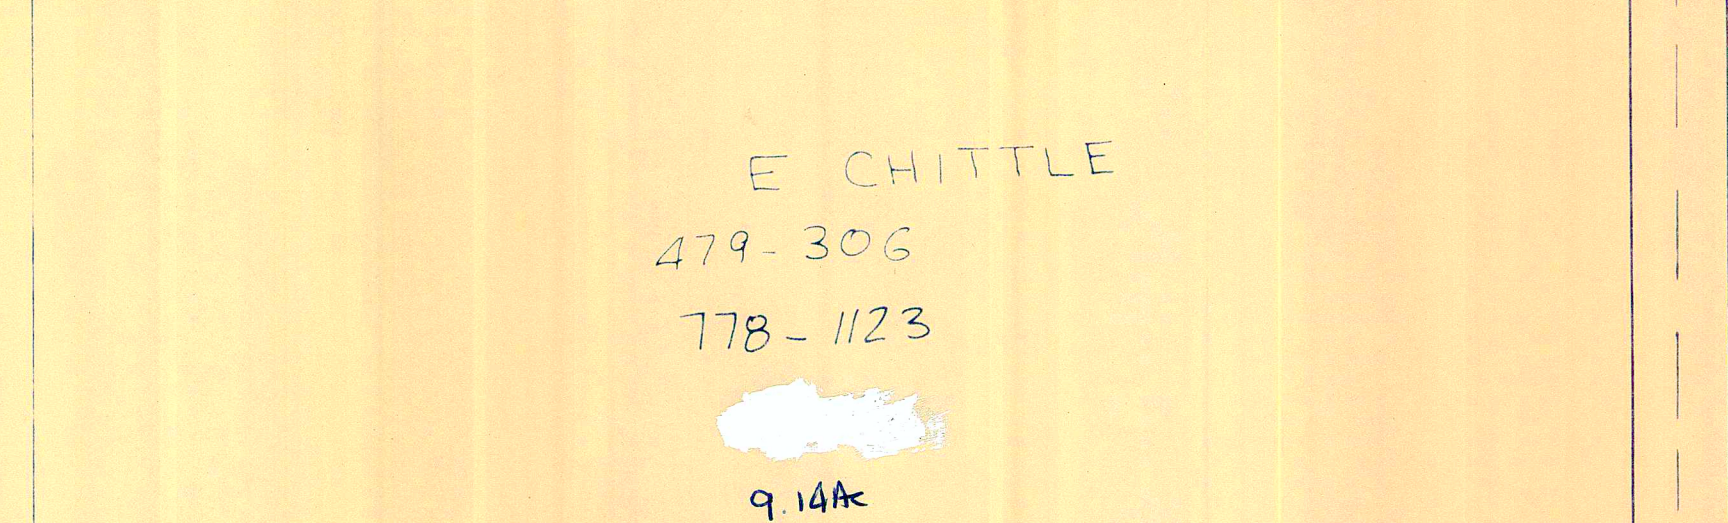 E CHITTLE
479-306
778-1123
9.14Ac